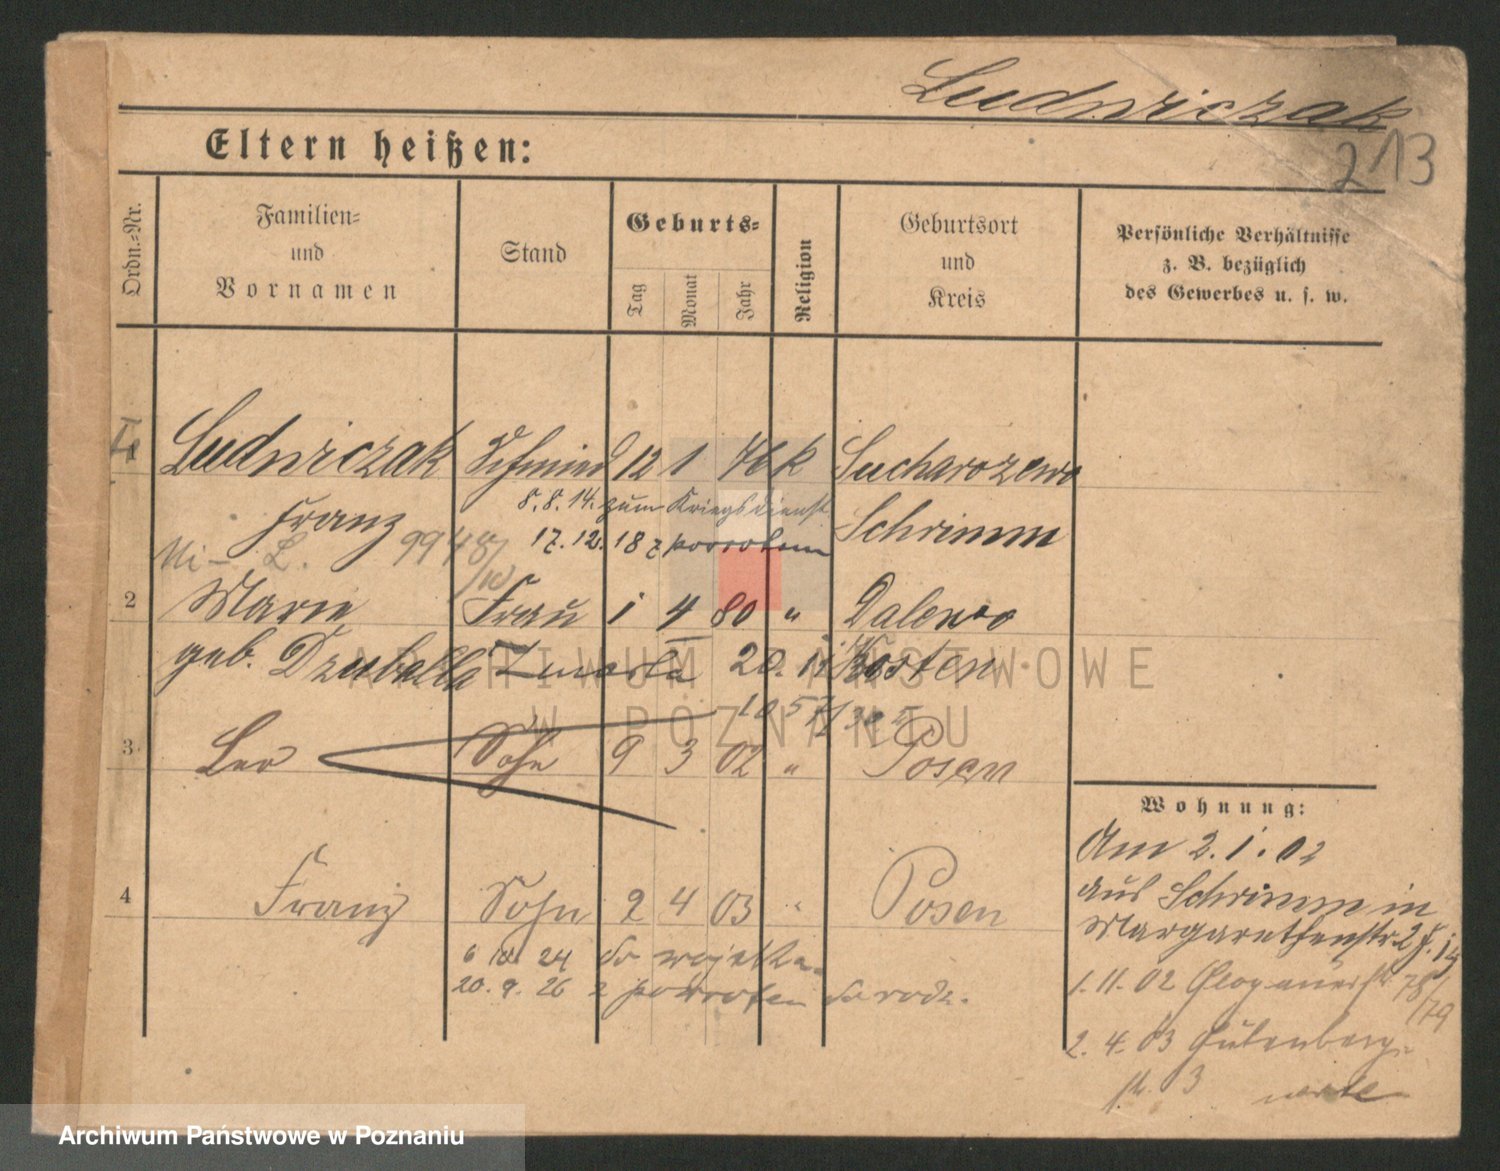 Ludwiczak
213
Eltern heißen:
Ordn.=Nr.
Familien=
und
Vornamen
Stand
Geburts=
Tag
Monat
Jahr
Religion
Geburtsort
und
Kreis
Persönliche Verhältnisse
z. B. bezüglich
des Gewerbes u. s. w.
1 Ludwiczak Schmied 12 1 76 k Sucharzewo
Franz 8.8.14. zum Kriegsdienst Schrimm
17.12.18 z powrotem
2 Marie Frau 1 4 80 " Dalewo
geb. Zmarła 20. Kosten
3 Leo Sohn 9 3 02 " Posen
4 Franz Sohn 2 4 03 " Posen
24 do wojska
20.9.26 z powrotem do rodz.
Wohnung:
Am 2.1.02
aus Schrimm in
Margarethenstr.
1.11.02 Glogauerstr 78/79
2.4.03 Gutenberg-
str. 3
ARCHIWUM PAŃSTWOWE
W POZNANIU
Archiwum Państwowe w Poznaniu